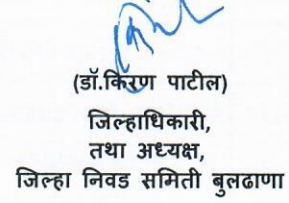 (डॉ.किरण पाटील)
जिल्हाधिकारी,
तथा अध्यक्ष,
जिल्हा निवड समिती बुलढाणा